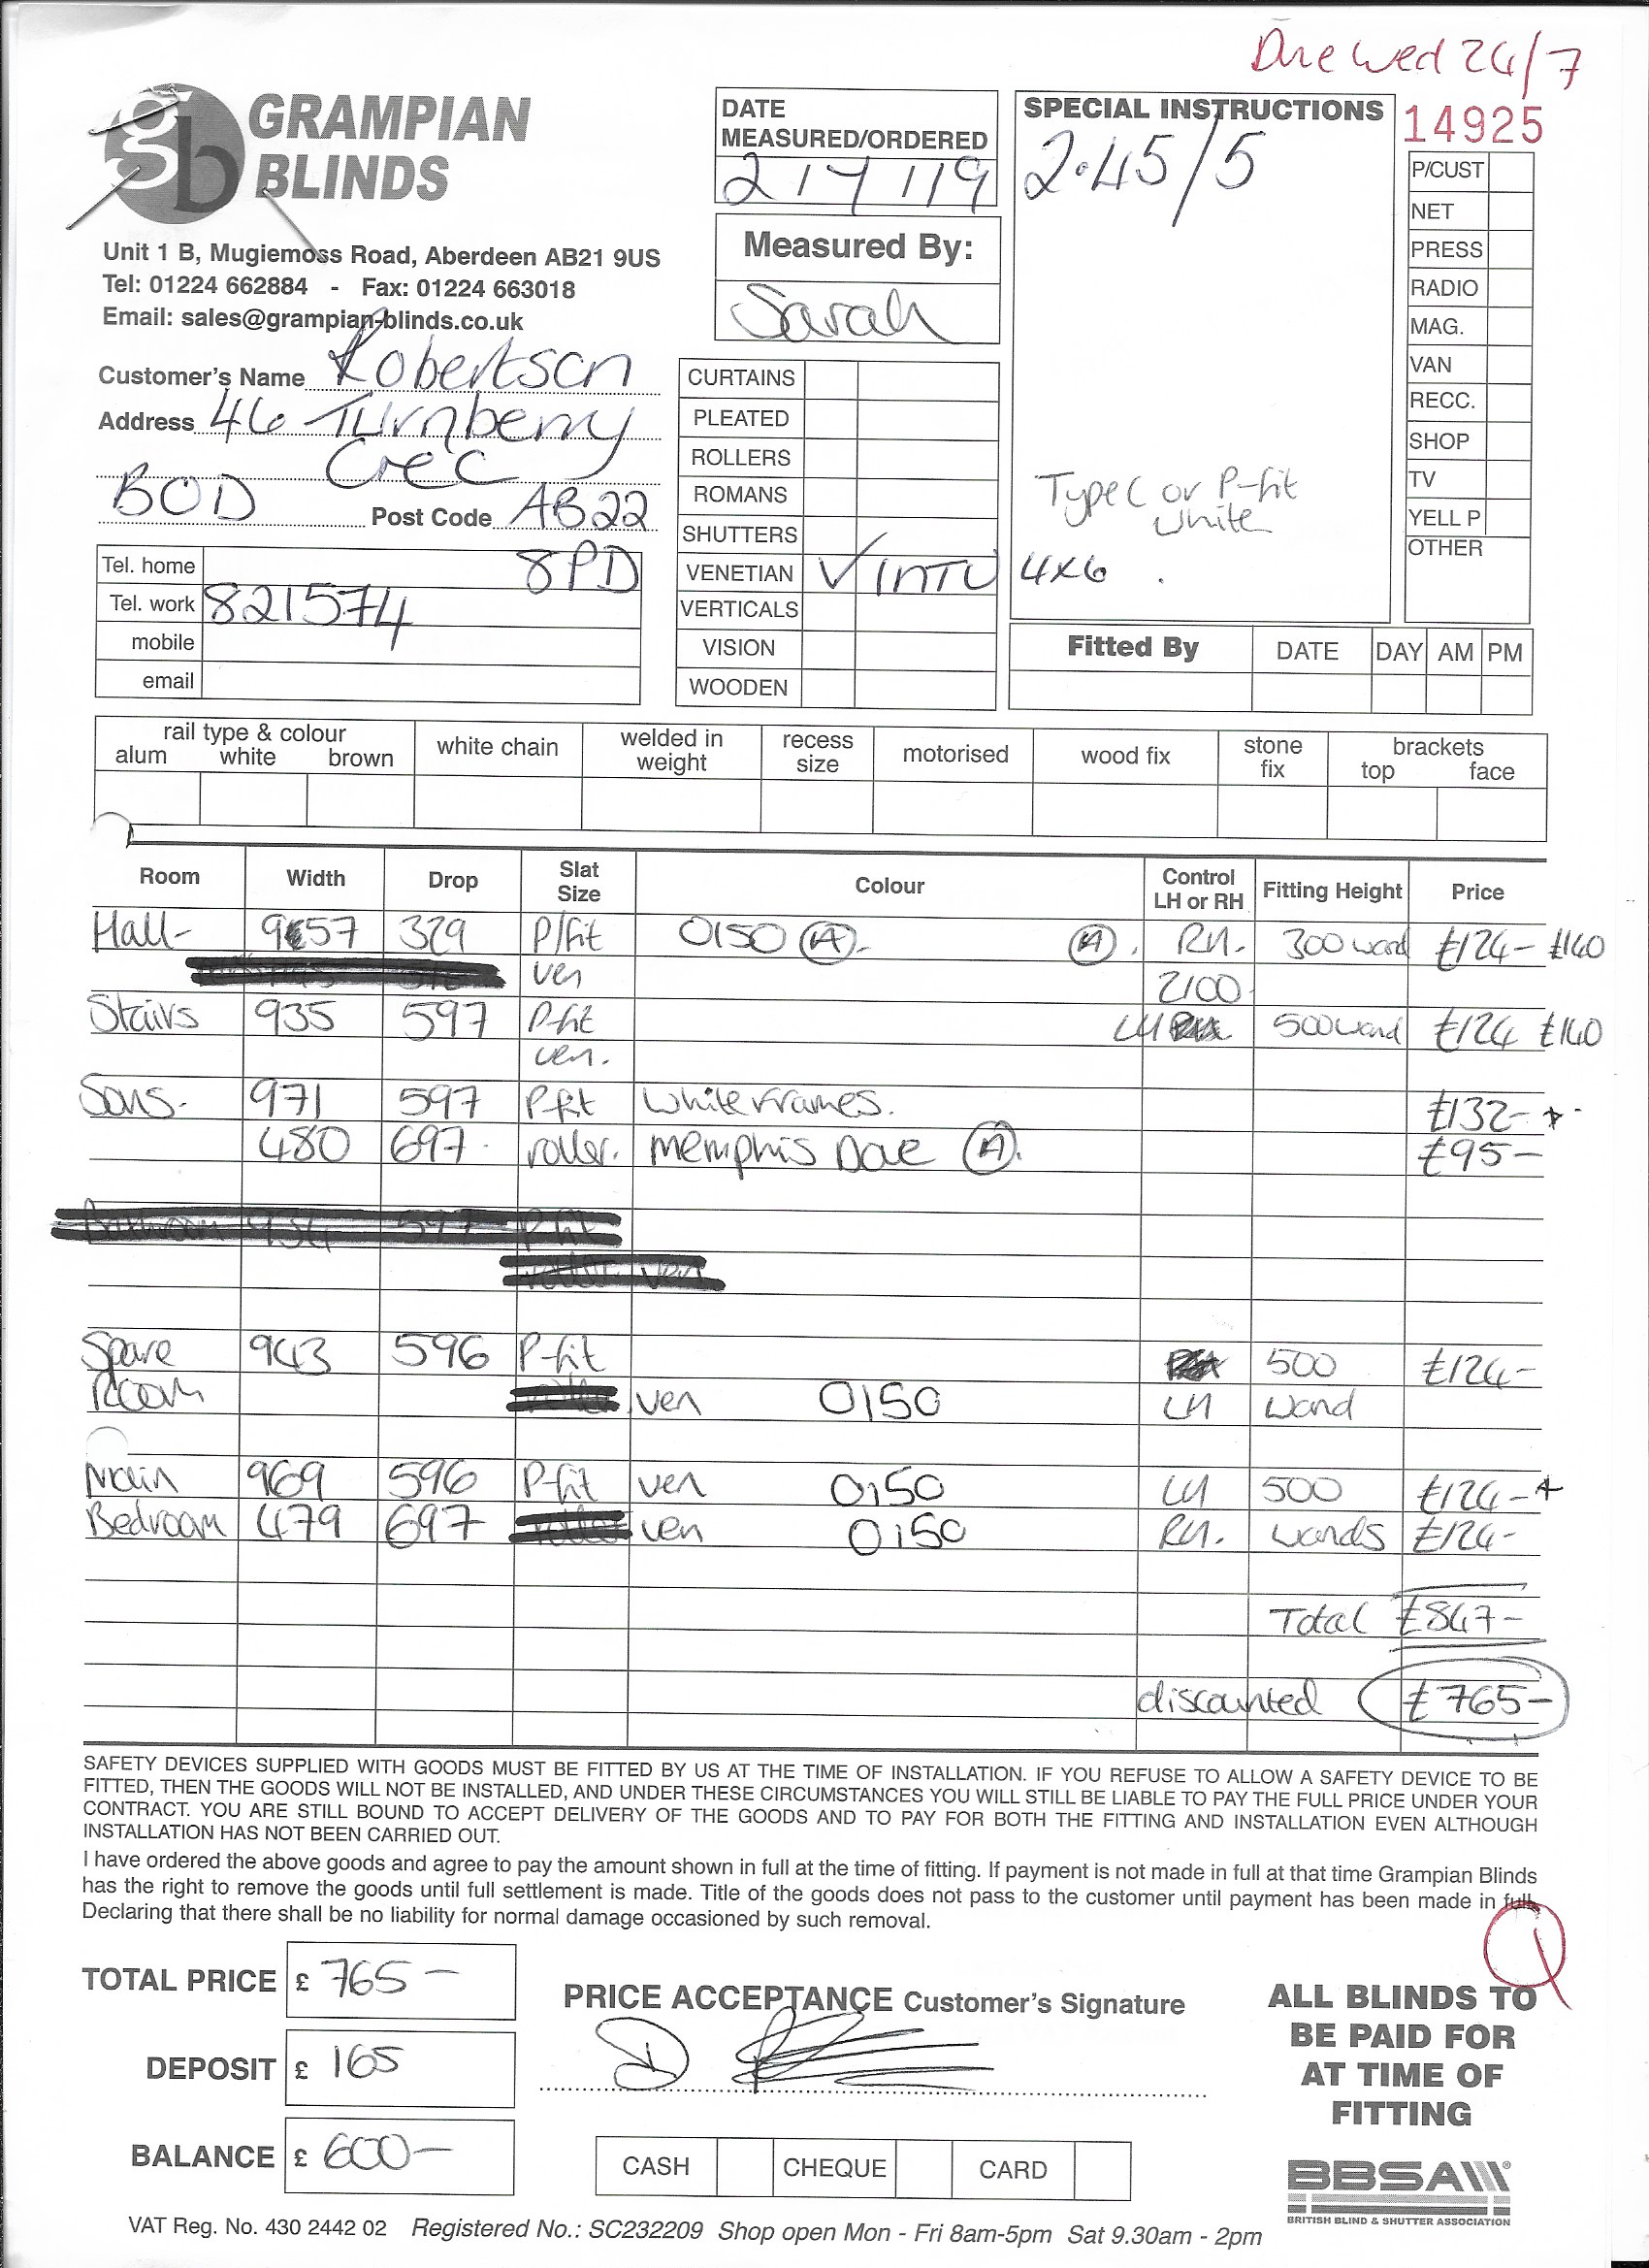 Due Wed 24/7
GRAMPIAN
BLINDS
Unit 1 B, Mugiemoss Road, Aberdeen AB21 9US
Tel: 01224 662884 - Fax: 01224 663018
Email: sales@grampian-blinds.co.uk
DATE
MEASURED/ORDERED
2/7/19
Measured By:
Sarah
SPECIAL INSTRUCTIONS
2.45/5
Type C or P-fit
white
4x6
14925
P/CUST
NET
PRESS
RADIO
MAG.
VAN
RECC.
SHOP
TV
YELL P
OTHER
Customer's Name Robertson
Address 46 Turnberry
Crec
BOD Post Code AB22
8PD
Tel. home
Tel. work 821574
mobile
email
CURTAINS
PLEATED
ROLLERS
ROMANS
SHUTTERS
VENETIAN ✓ INTU
VERTICALS
VISION
WOODEN
Fitted By DATE DAY AM PM
rail type & colour
alum white brown
white chain
welded in
weight
recess
size
motorised
wood fix
stone
fix
brackets
top face
Room Width Drop Slat Size Colour Control LH or RH Fitting Height Price
Hall- 957 329 P/fit 0150 (A). (A). RH. 300 wand £124- £140
ven 2100
Stairs 935 597 P-fit LH 500 wand £124 £140
ven.
Sons- 971 597 P-fit White Frames. £132- *
480 697 roller. Memphis Dove (A). £95-
Spare 943 596 P-fit 500 £124-
Room ven 0150 LH wand
Main 969 596 P-fit ven 0150 LH 500 £124- *
Bedroom 479 697 ven 0150 RH. wands £124-
Total £847-
discounted £765-
SAFETY DEVICES SUPPLIED WITH GOODS MUST BE FITTED BY US AT THE TIME OF INSTALLATION. IF YOU REFUSE TO ALLOW A SAFETY DEVICE TO BE
FITTED, THEN THE GOODS WILL NOT BE INSTALLED, AND UNDER THESE CIRCUMSTANCES YOU WILL STILL BE LIABLE TO PAY THE FULL PRICE UNDER YOUR
CONTRACT. YOU ARE STILL BOUND TO ACCEPT DELIVERY OF THE GOODS AND TO PAY FOR BOTH THE FITTING AND INSTALLATION EVEN ALTHOUGH
INSTALLATION HAS NOT BEEN CARRIED OUT.
I have ordered the above goods and agree to pay the amount shown in full at the time of fitting. If payment is not made in full at that time Grampian Blinds
has the right to remove the goods until full settlement is made. Title of the goods does not pass to the customer until payment has been made in full.
Declaring that there shall be no liability for normal damage occasioned by such removal.
TOTAL PRICE £ 765-
DEPOSIT £ 165
BALANCE £ 600-
PRICE ACCEPTANCE Customer's Signature
CASH CHEQUE CARD
ALL BLINDS TO
BE PAID FOR
AT TIME OF
FITTING
BBSA
BRITISH BLIND & SHUTTER ASSOCIATION
VAT Reg. No. 430 2442 02 Registered No.: SC232209 Shop open Mon - Fri 8am-5pm Sat 9.30am - 2pm